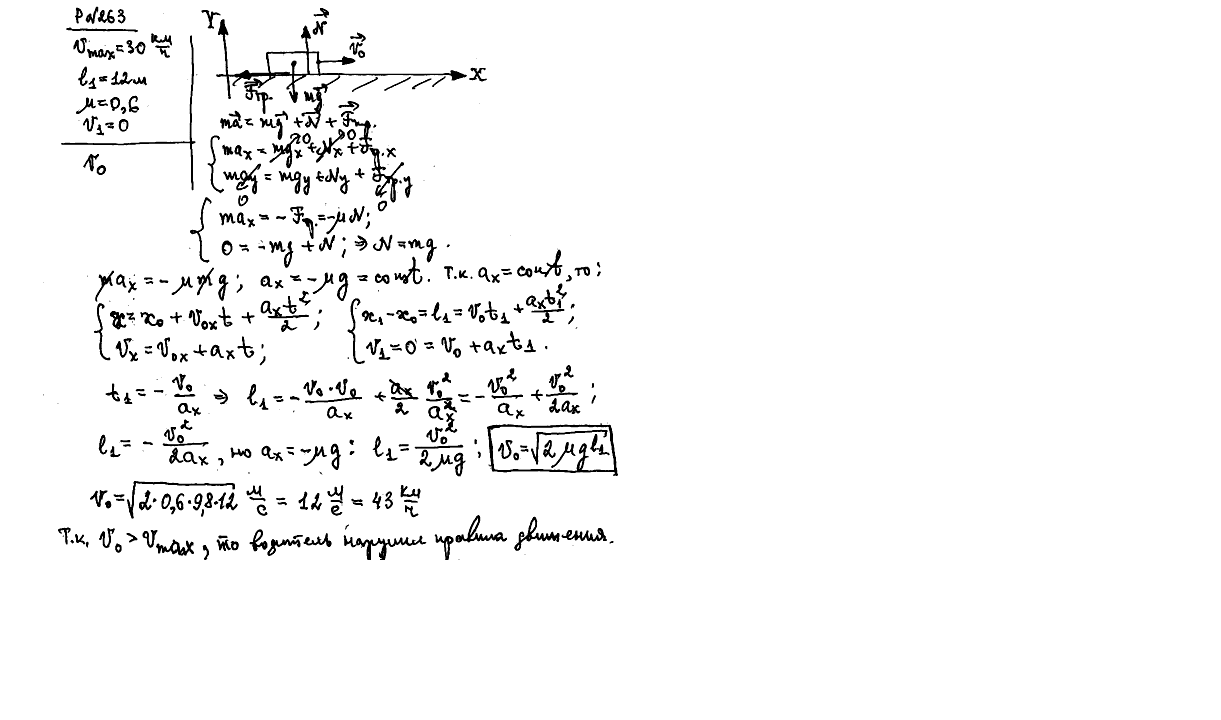 P №263
v_max = 30 км/ч
l₁ = 12 м
μ = 0,6
v₁ = 0
v₀
Y N⃗ v⃗₀ X
F⃗тр. mg⃗
ma⃗ = mg⃗ + N⃗ + F⃗тр.
{ maₓ = mgₓ→0 + Nₓ→0 + Fтр.x
{ ma_y→0 = mg_y + N_y + Fтр.y→0
{ maₓ = −Fтр. = −μN;
{ 0 = −mg + N; ⇒ N = mg.
maₓ = −μmg; aₓ = −μg = const. Т.к. aₓ = const, то:
{ x = x₀ + v₀ₓt + aₓt²/2; { x₁ − x₀ = l₁ = v₀t₁ + aₓt₁²/2;
{ vₓ = v₀ₓ + aₓt; { v₁ = 0 = v₀ + aₓt₁.
t₁ = − v₀/aₓ ⇒ l₁ = − v₀·v₀/aₓ + aₓ/2 v₀²/aₓ² = − v₀²/aₓ + v₀²/2aₓ;
l₁ = − v₀²/2aₓ, но aₓ = −μg: l₁ = v₀²/2μg; v₀ = √(2μgl₁)
v₀ = √(2·0,6·9,8·12) м/с = 12 м/с = 43 км/ч
Т.к. v₀ > v_max, то водитель нарушил правила движения.